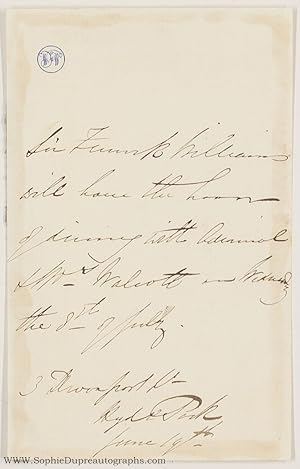 Sir Fenwick Williams
will have the honor
of dining with Admiral
& Mrs Walcott on Wednesday
the 8th of July.
3 Devonport St
Hyde Park
June 19th
www.SophieDupreautographs.com